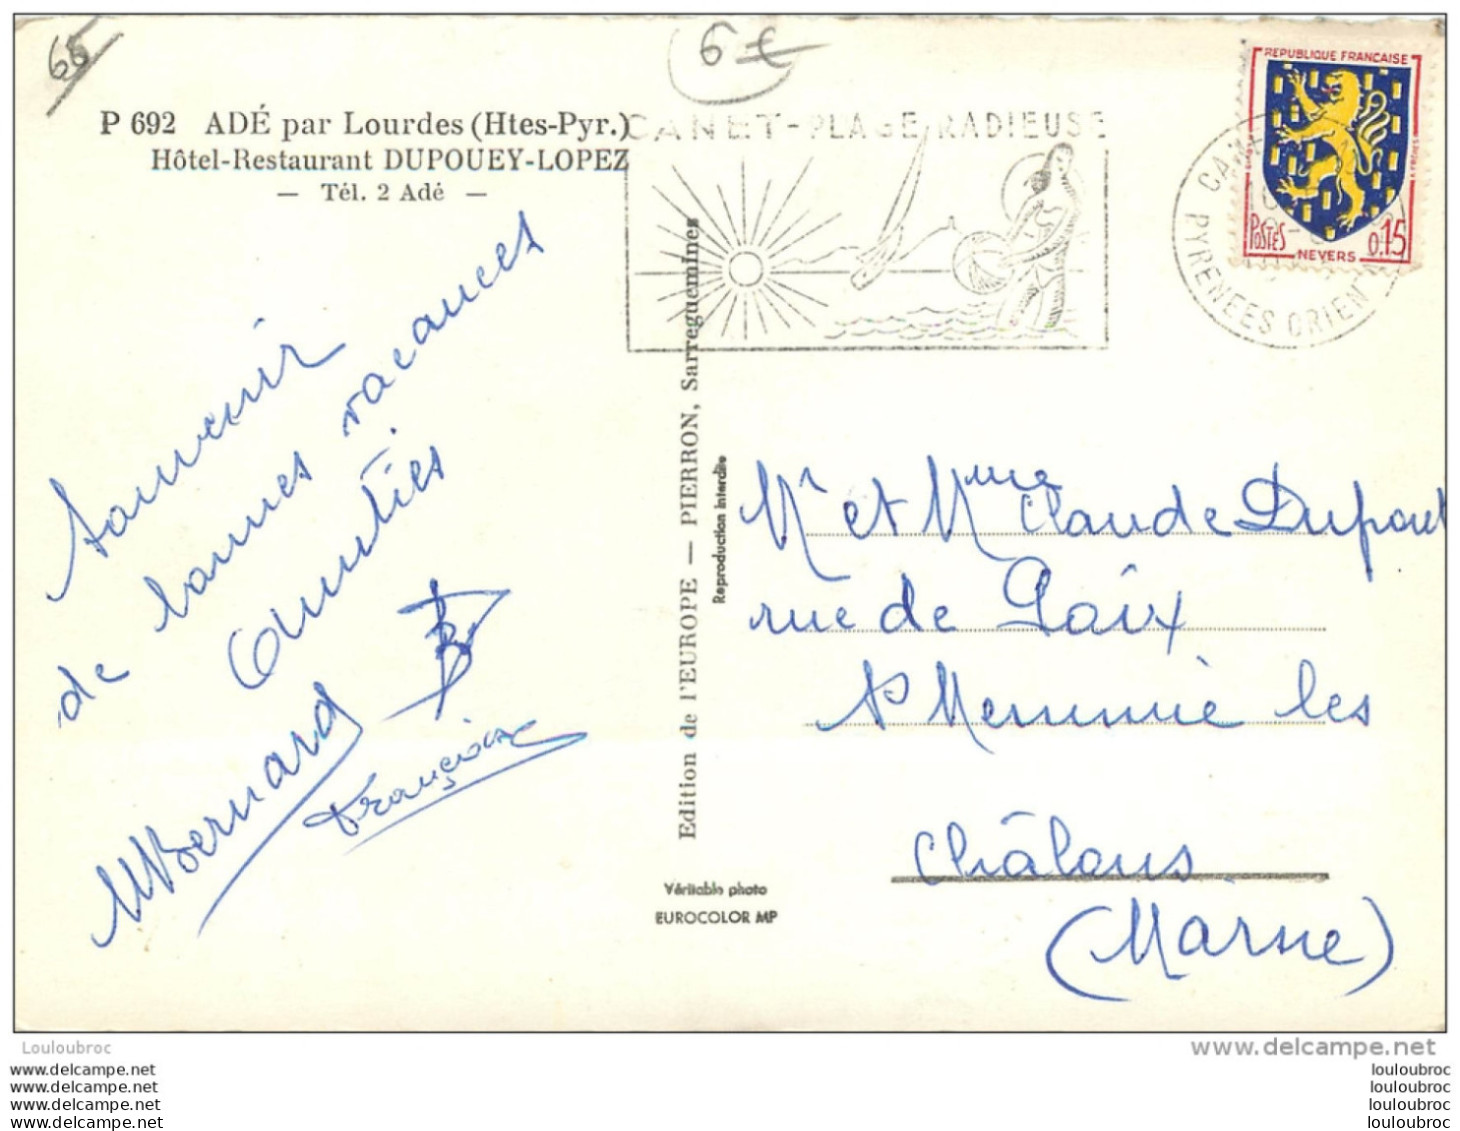 65
6 €
P 692 ADÉ par Lourdes (Htes-Pyr.)
Hôtel-Restaurant DUPOUEY-LOPEZ
— Tél. 2 Adé —
CANET-PLAGE RADIEUSE
REPUBLIQUE FRANÇAISE
POSTES
0.15
NEVERS
PYRENEES ORIENT
Souvenir
de bonnes vacances
Amitiés
Bernard
Françoise
Edition de l'EUROPE — PIERRON, Sarreguemines
Reproduction interdite
Véritable photo
EUROCOLOR MP
Mr et Mme Claude Dupont
rue de Paix
St Memmie les
Châlons
(Marne)
Louloubroc
www.delcampe.net
www.delcampe.net
www.delcampe.net
www.delcampe.net
www.delcampe.net
louloubroc
louloubroc
louloubroc
louloubroc